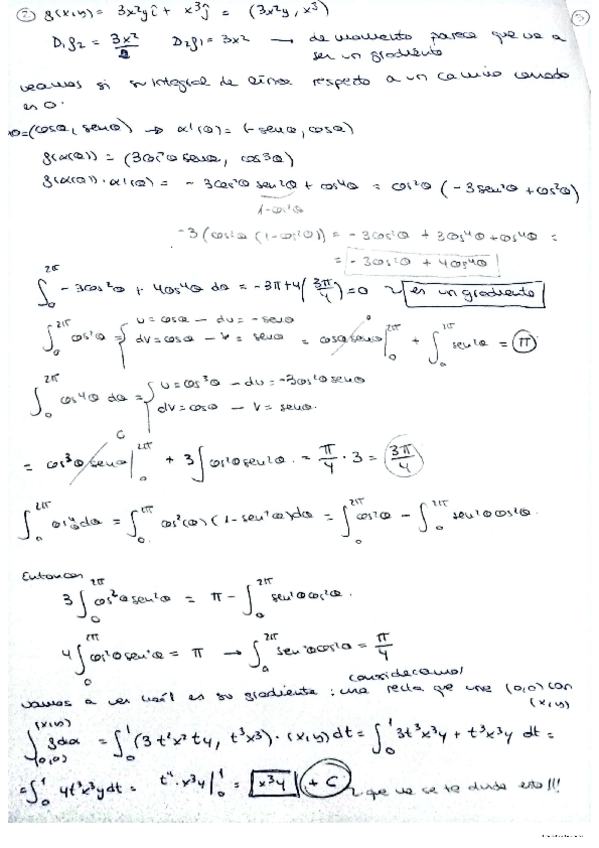 ② f(x,y) = 3x²y î + x³ ĵ = (3x²y, x³)
D₁f₂ = 3x² D₂f₁ = 3x² → de momento parece que va a
ser un gradiente
veamos si su integral de línea respecto a un camino cerrado
es 0.
=(cosθ, senθ) → α'(θ) = (-senθ, cosθ)
f(α(θ)) = (3cos²θ senθ, cos3θ)
f(α(θ))·α'(θ) = -3cos²θ sen²θ + cos⁴θ = cos²θ (-3sen²θ + cos²θ)
1-cos²θ
-3(cos²θ (1-cos²θ)) = -3cos²θ + 3cos⁴θ + cos⁴θ =
= -3cos²θ + 4cos⁴θ
∫₀^2π -3cos²θ + 4cos⁴θ dθ = -3π + 4(3π/4) = 0 es un gradiente
∫₀^2π cos²θ = { u = cosθ — du = -senθ
dv = cosθ — v = senθ = cosθ senθ |₀^2π + ∫₀^2π sen²θ = π
∫₀^2π cos⁴θ dθ = { u = cos³θ — du = -3cos²θ senθ
dv = cosθ — v = senθ.
= cos³θ senθ |₀^2π + 3∫cos²θ sen²θ = π/4 · 3 = 3π/4
∫₀^2π cos⁴θ dθ = ∫₀^2π cos²(θ) (1-sen²θ)dθ = ∫₀^2π cos²θ - ∫₀^2π sen²θ cos²θ.
Entonces
3∫₀^2π cos²θ sen²θ = π - ∫₀^2π sen²θ cos²θ.
4∫₀^2π cos²θ sen²θ = π → ∫₀^2π sen²θ cos²θ = π/4
consideramos
vamos a ver cuál es su gradiente: una recta que une (0,0) con
(x,y)
∫(0,0)^(x,y) f dα = ∫₀¹ (3t²x²ty, t³x³)·(x,y) dt = ∫₀¹ 3t³x³y + t³x³y dt =
= ∫₀¹ 4t³x³y dt = t⁴·x³y |₀¹ = x³y + C que no se te olvide esto!!!